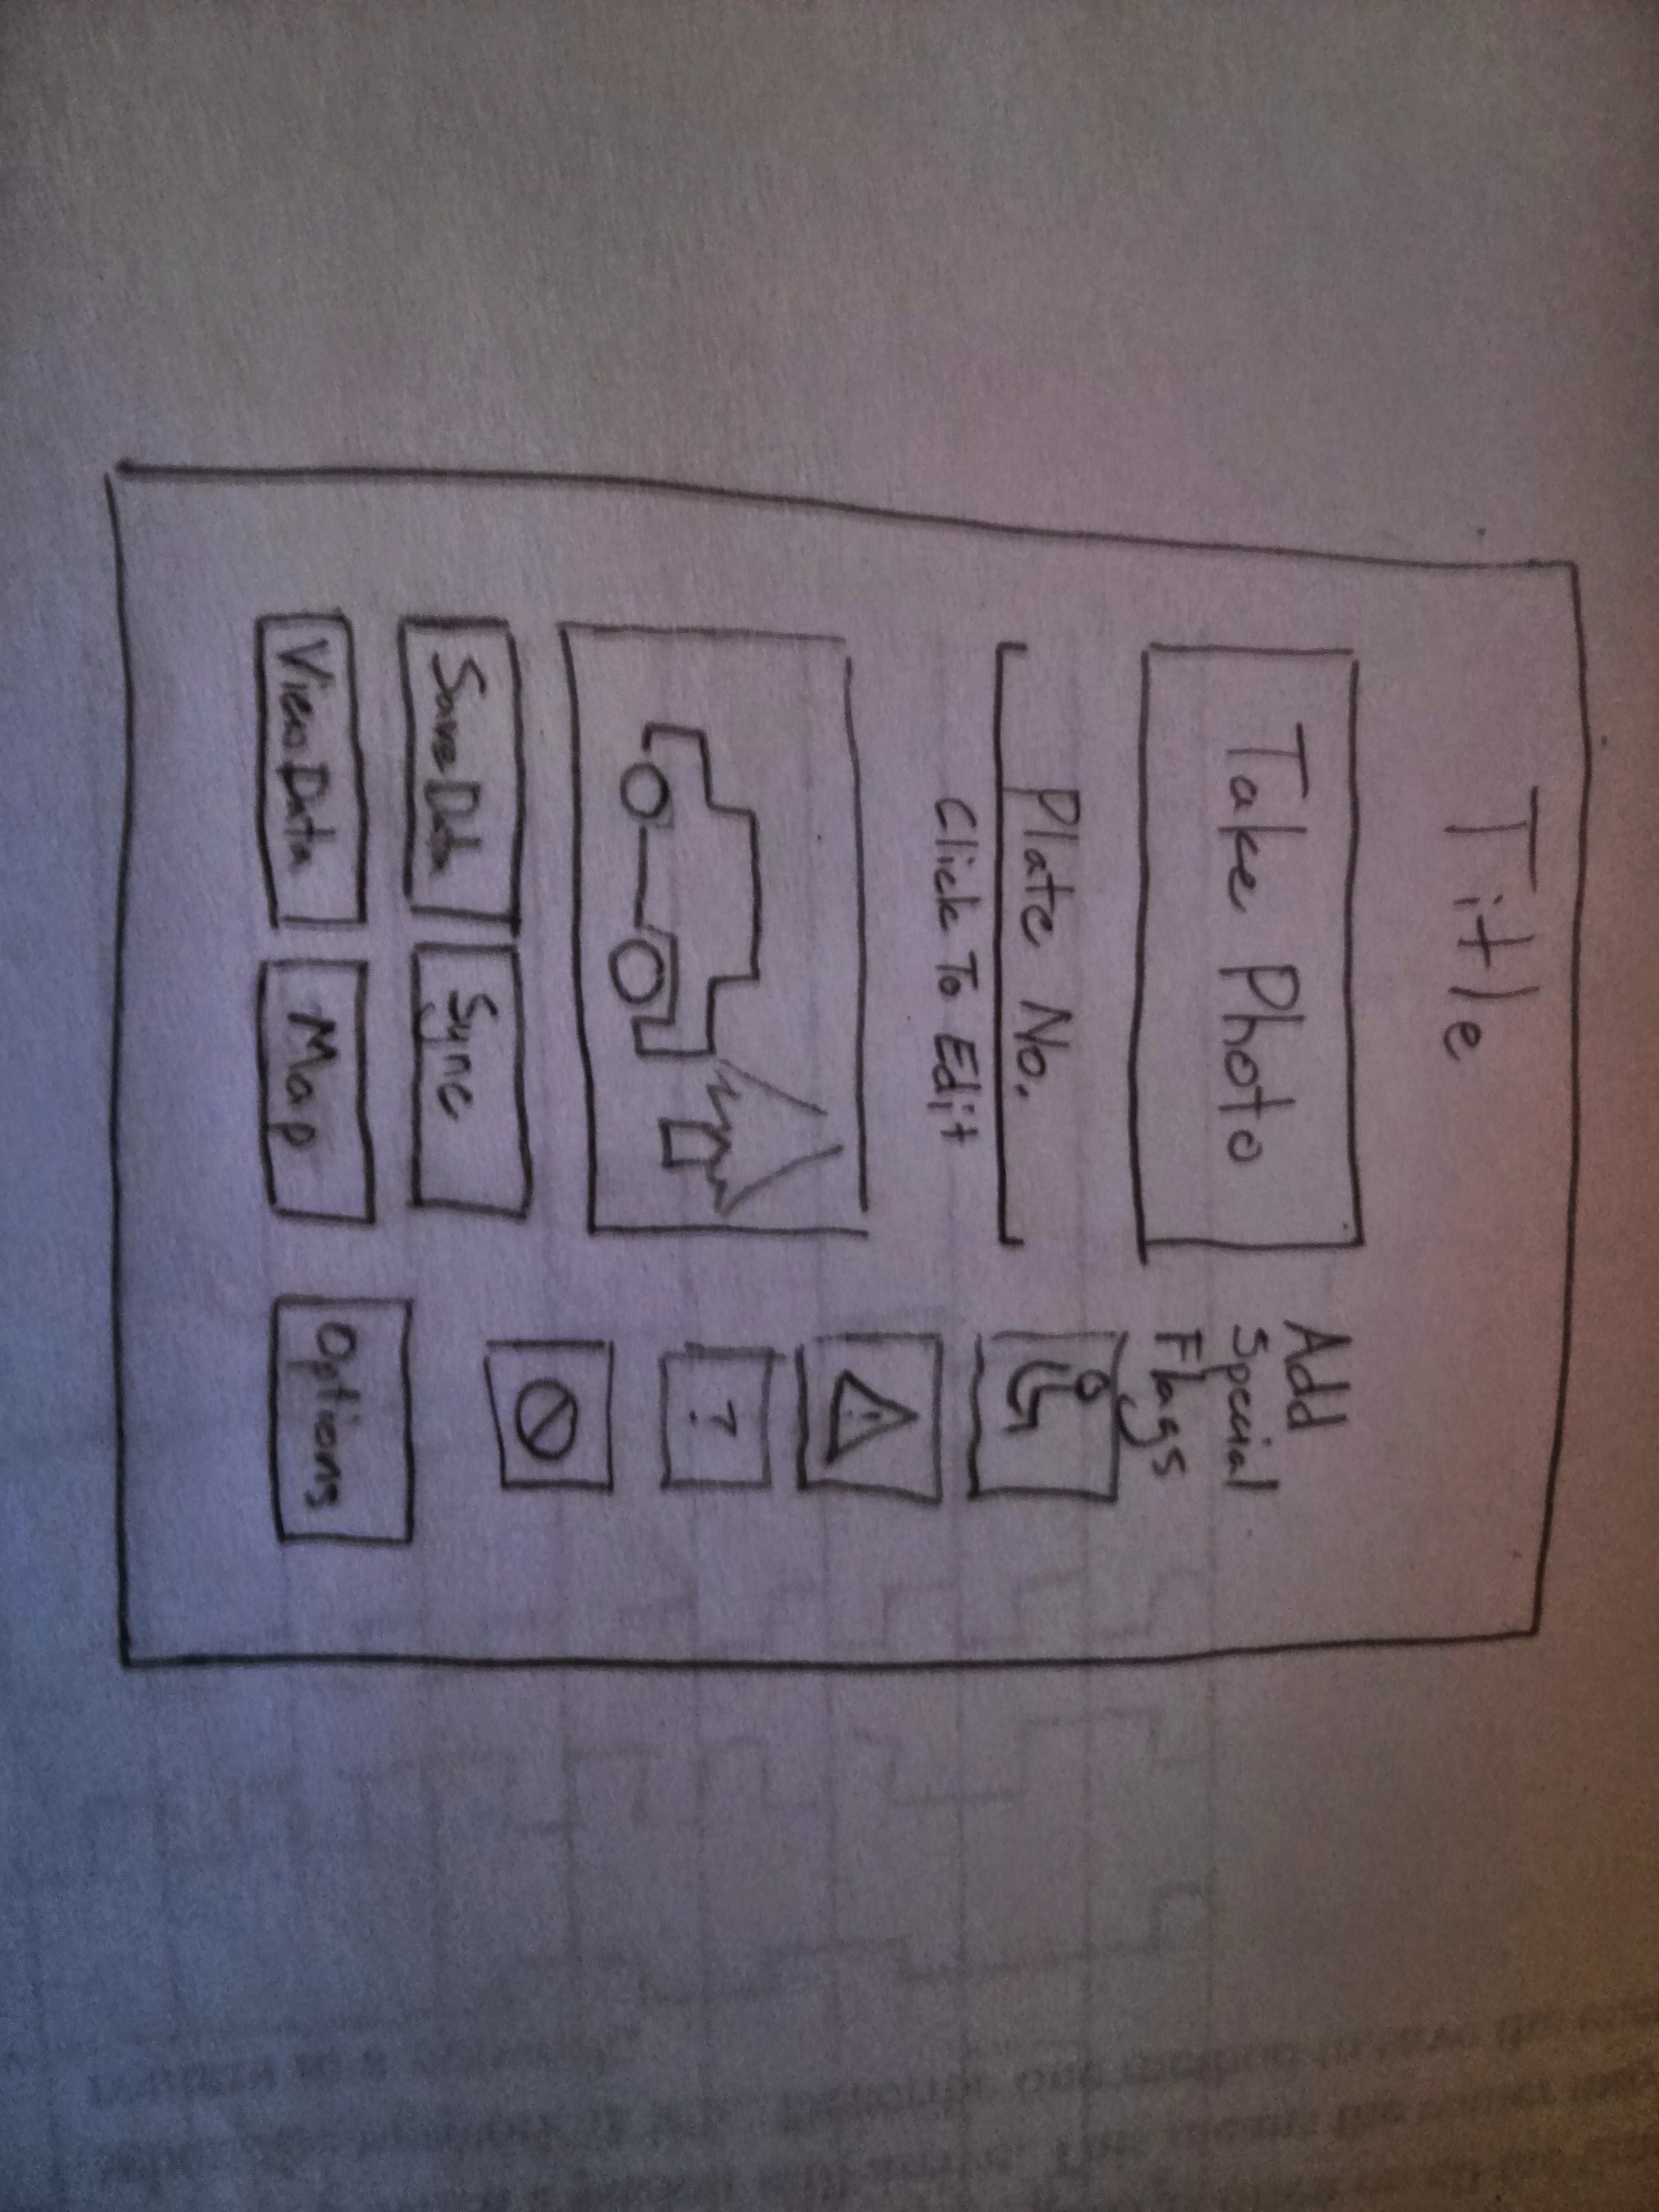 Title
Take Photo
Plate No.
Click To Edit
Save Data
Sync
View Data
Map
Add
Special
Flags
!
?
Options